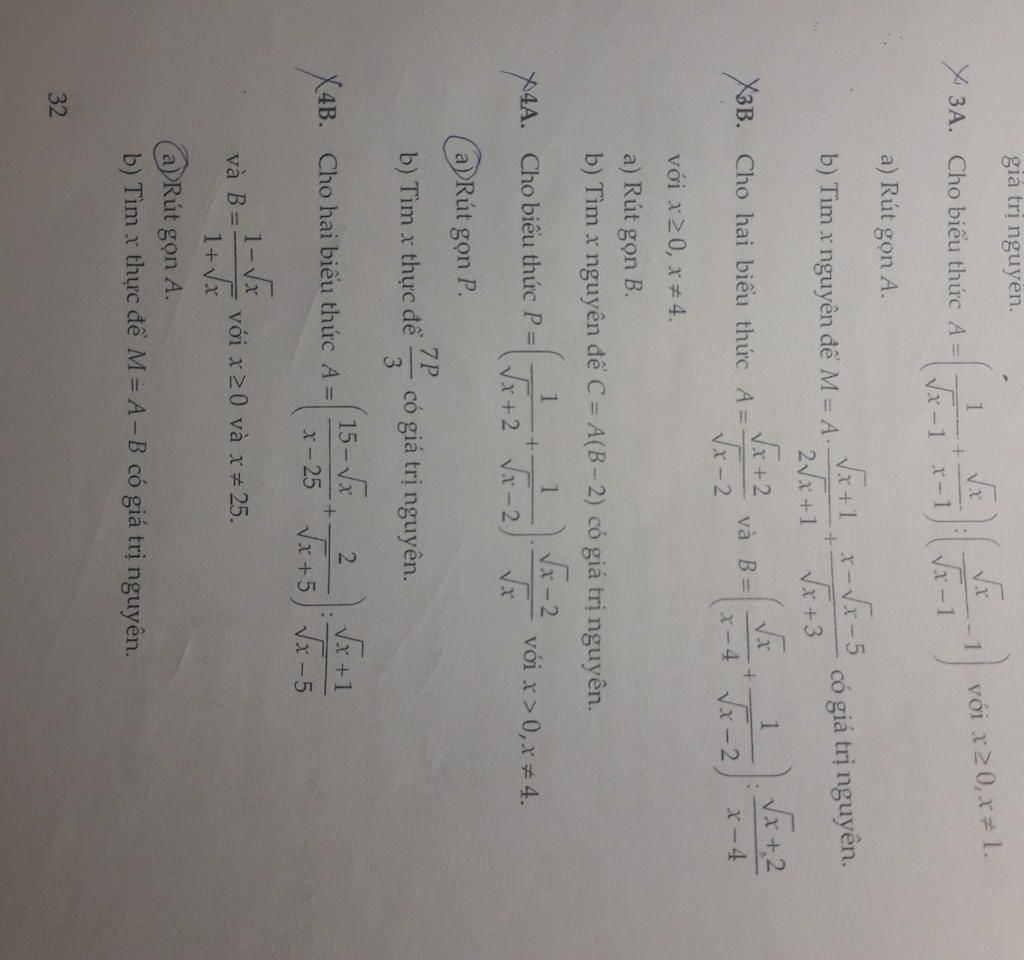 giá trị nguyên.
3A. Cho biểu thức A = (1/(√x−1) + √x/(x−1)) : (√x/(√x−1) − 1) với x ≥ 0, x ≠ 1.
a) Rút gọn A.
b) Tìm x nguyên để M = A · (√x+1)/(2√x+1) + (x−√x−5)/(√x+3) có giá trị nguyên.
3B. Cho hai biểu thức A = (√x+2)/(√x−2) và B = (√x/(x−4) + 1/(√x−2)) : (√x+2)/(x−4)
với x ≥ 0, x ≠ 4.
a) Rút gọn B.
b) Tìm x nguyên để C = A(B − 2) có giá trị nguyên.
4A. Cho biểu thức P = (1/(√x+2) + 1/(√x−2)) · (√x−2)/√x với x > 0, x ≠ 4.
a) Rút gọn P.
b) Tìm x thực để 7P/3 có giá trị nguyên.
4B. Cho hai biểu thức A = ((15−√x)/(x−25) + 2/(√x+5)) : (√x+1)/(√x−5)
và B = (1−√x)/(1+√x) với x ≥ 0 và x ≠ 25.
a) Rút gọn A.
b) Tìm x thực để M = A − B có giá trị nguyên.
32